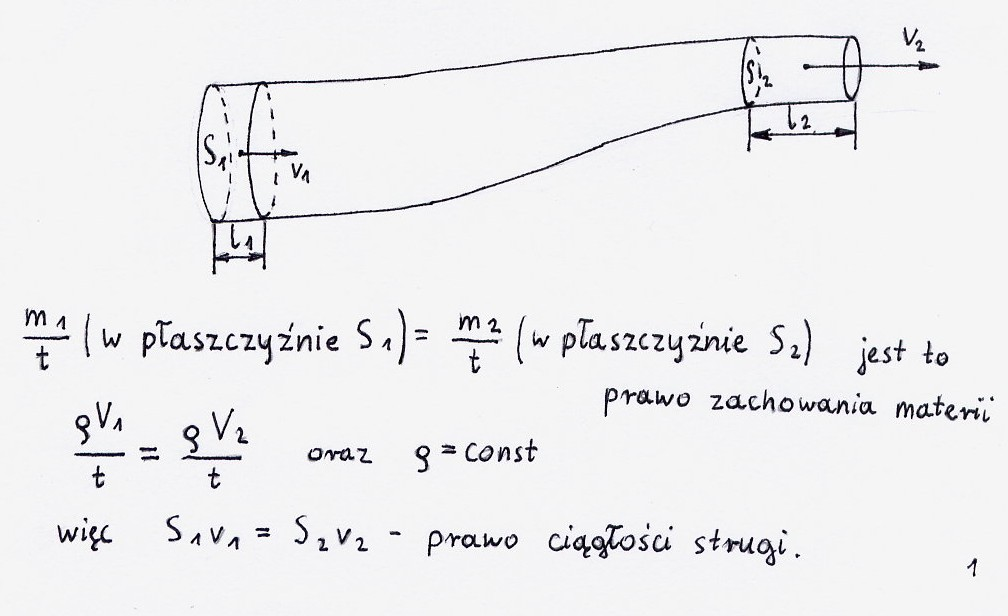 V₂
S₂
l₂
S₁
v₁
l₁
m₁/t (w płaszczyźnie S₁) = m₂/t (w płaszczyźnie S₂) jest to
prawo zachowania materii
ρV₁/t = ρV₂/t oraz ρ = const
więc S₁v₁ = S₂v₂ - prawo ciągłości strugi.
1